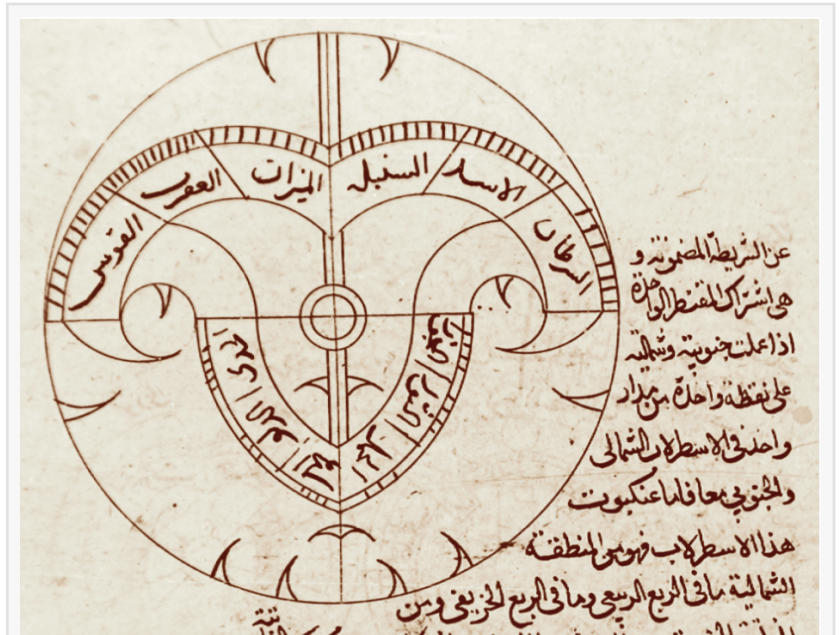 السرطان
الاسد
السنبله
الميزان
العقرب
القوس
الجدى
الدلو
الحوت
الحمل
الثور
عن الشريطة المضمونة و
هى اشتراك المقنطر الواحدة
اذا عملت جنوبية وشمالية
على نقطة واحدة من مدار
واحد فى الاسطرلاب الشمالى
والجنوبى معا فاما عنكبوت
هذا الاسطرلاب فهو من المنطقة
الشمالية ما فى الربع الربيعى وما فى الربع الخريفى ومن